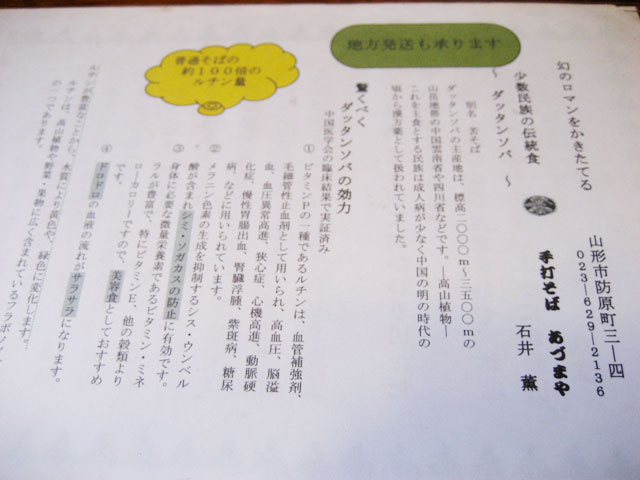 幻のロマンをかきたてる
少数民族の伝統食
～ ダッタンソバ ～
山形市防原町三―四
023―629―2136
手打そば あづまや
石井 薫
地方発送も承ります
別名 苦そば
ダッタンソバの主産地は、標高二〇〇〇m～三五〇〇mの
山岳地帯の中国雲南省や四川省などです。―高山植物―
これを主食とする民族は成人病が少なく中国の明の時代の
頃から漢方薬として扱われていました。
驚くべく
ダッタンソバの効力
中国医学会の臨床結果で実証済み
普通そばの
約100倍の
ルチン量
① ビタミンPの一種であるルチンは、血管補強剤、
毛細管性止血剤として用いられ、高血圧、脳溢
血、血圧異常高進、狭心症、心機高進、動脈硬
化症、慢性胃腸出血、腎臓浮腫、紫斑病、糖尿
病、などに用いられています。
② メラニン色素の生成を抑制するシス・ウンベル
酸が含まれシミ・ソガカスの防止に有効です。
③ 身体に必要な微量栄養素であるビタミン・ミネ
ラルが豊富で、特にビタミンE、他の穀類より
ローカロリーですので、美容食としておすすめ
です。
④ ドロドロの血液の流れがサラサラになります。
ルチンが豊富なことから、水質により黄色や、緑色に変化します。
ルチンは、高山植物や野菜・果物に広く含まれているフラボノ
の一つであります。